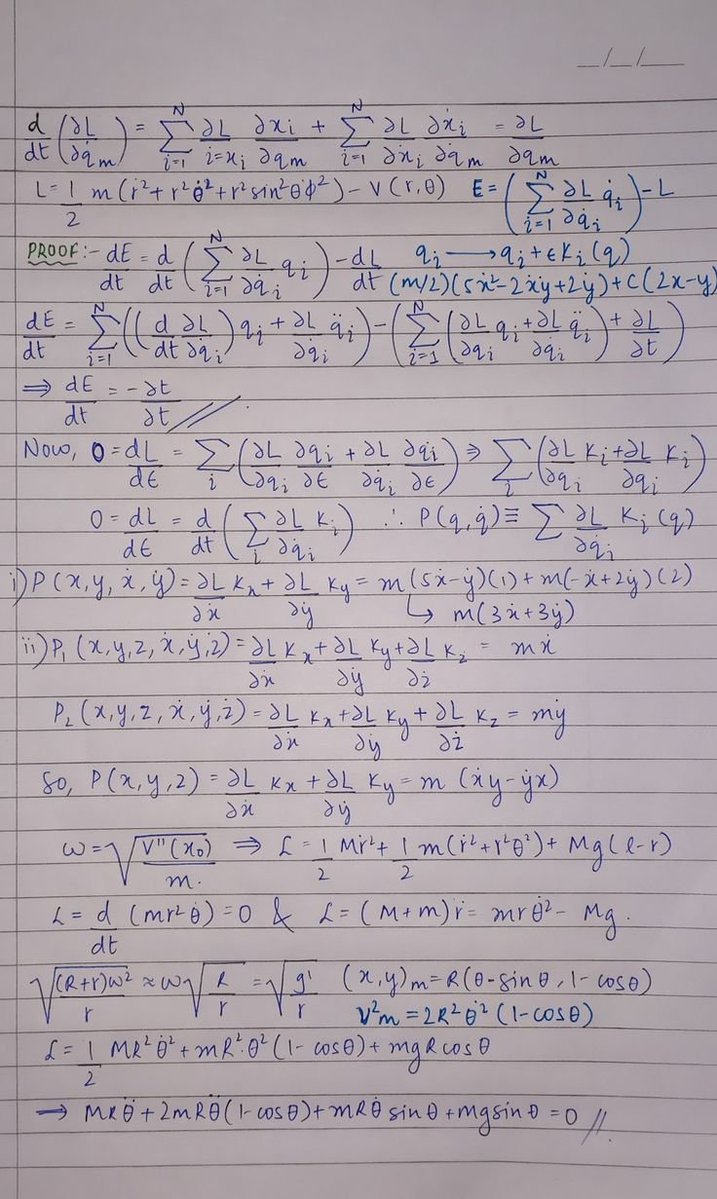 _/_/_
d/dt (∂L/∂q̇m) = Σ_{i=1}^{N} ∂L/i=xi ∂xi/∂qm + Σ_{i=1}^{N} ∂L/∂ẋi ∂ẋi/∂qm = ∂L/∂qm
L = 1/2 m(ṙ² + r²θ̇² + r²sin²θφ̇²) − V(r,θ) E = (Σ_{i=1}^{N} ∂L/∂q̇i q̇i) − L
PROOF:- dE/dt = d/dt (Σ_{i=1}^{N} ∂L/∂q̇i qi) − dL/dt qi → qi + ϵKi(q)
(m/2)(5ẋ² − 2ẋẏ + 2ẏ) + C(2x − y)
dE/dt = Σ_{i=1}^{N} ((d/dt ∂L/∂q̇i) qi + ∂L/∂q̇i q̈i) − (Σ_{i=1}^{N} (∂L/∂qi qi + ∂L/∂q̇i q̈i) + ∂L/∂t)
⇒ dE/dt = −∂t/∂t //.
Now, 0 = dL/dE = Σ_i (∂L/∂qi ∂qi/∂E + ∂L/∂q̇i ∂q̇i/∂E) ⇒ Σ_i (∂L/∂qi Ki + ∂L/∂q̇i K̇i)
0 = dL/dE = d/dt (Σ_i ∂L/∂q̇i Ki) ∴ P(q,q̇) ≡ Σ ∂L/∂q̇i Ki(q)
i) P(x,y,ẋ,ẏ) = ∂L/∂ẋ Kx + ∂L/∂ẏ Ky = m(5ẋ−ẏ)(1) + m(−ẋ+2ẏ)(2)
↳ m(3ẋ+3ẏ)
ii) P1(x,y,z,ẋ,ẏ,ż) = ∂L/∂ẋ Kx + ∂L/∂ẏ Ky + ∂L/∂ż Kz = mẋ
P2(x,y,z,ẋ,ẏ,ż) = ∂L/∂ẋ Kx + ∂L/∂ẏ Ky + ∂L/∂ż Kz = mẏ
So, P(x,y,z) = ∂L/∂ẋ Kx + ∂L/∂ẏ Ky = m (ẋy − ẏx)
ω = √(V''(x0)/m.) ⇒ L = 1/2 Mṙ² + 1/2 m(ṙ² + r²θ̇²) + Mg(l−r)
L = d/dt (mr²θ̇) = 0 & L = (M+m)r̈ = mrθ̇² − Mg.
√((R+r)ω²/r) ≈ ω√(R/r) = √(g'/r) (x,y)m = R(θ−sinθ, 1−cosθ)
V²m = 2R²θ̇²(1−cosθ)
L = 1/2 MR²θ̇² + mR²θ̇²(1−cosθ) + mgRcosθ
→ MRθ̈ + 2mRθ̈(1−cosθ) + mRθ̇ sinθ + mgsinθ = 0 //.